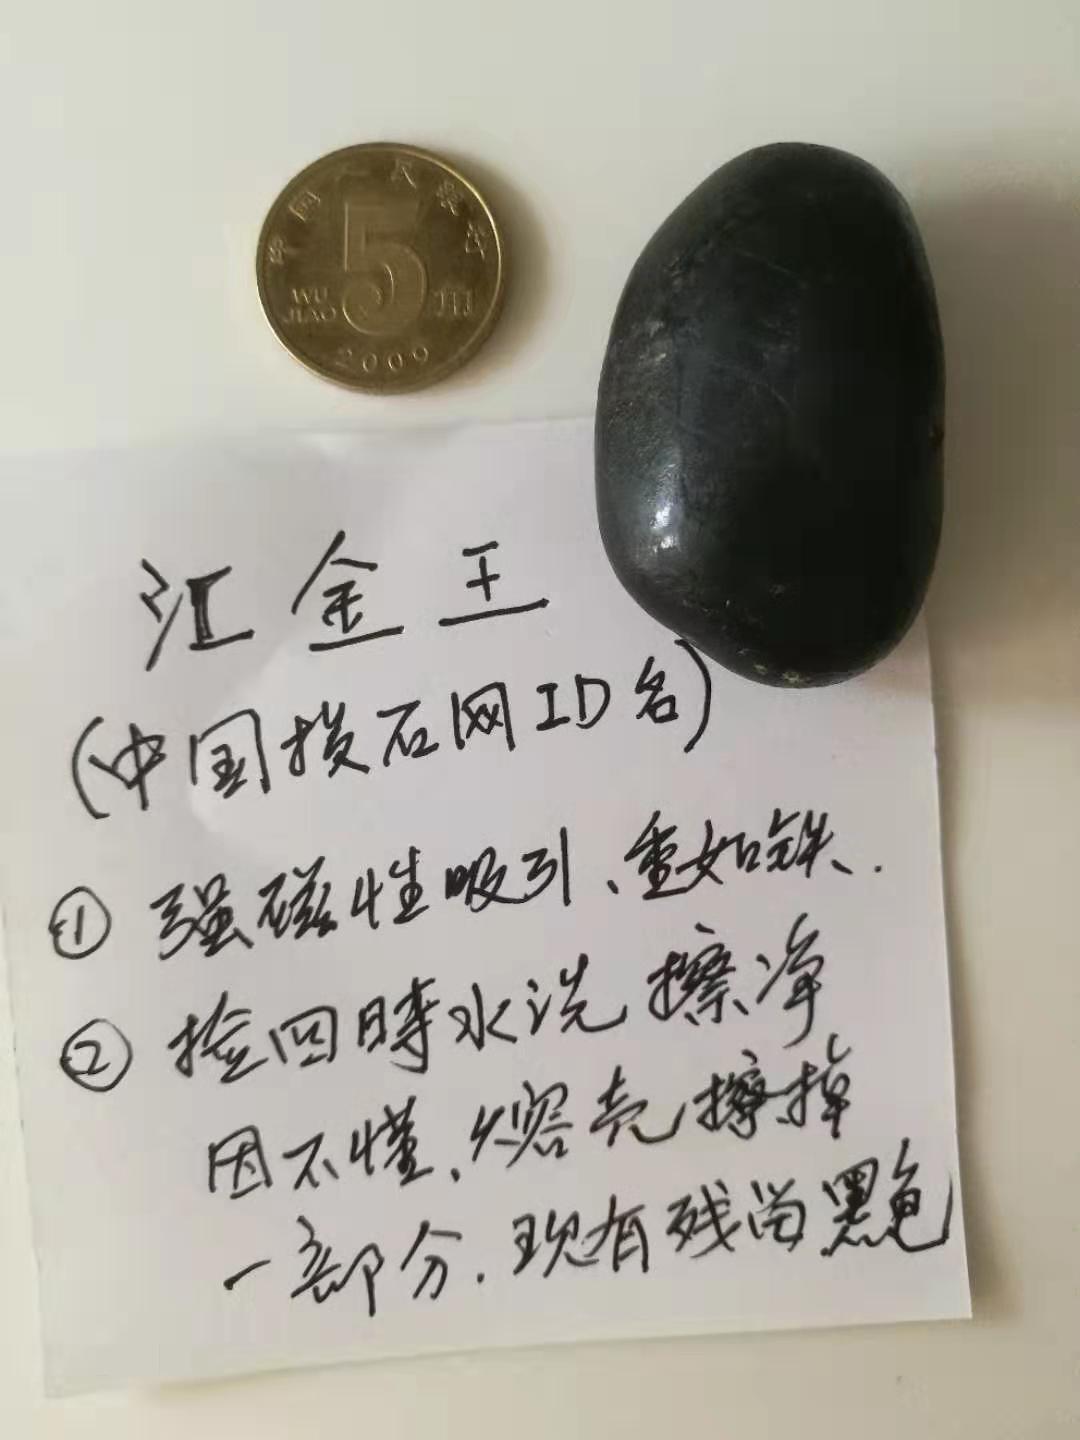 中国人民银行
5角
WU JIAO
2009
汇金王
(中国损石网ID名)
① 强磁性吸引、重如铁.
② 捡回時水洗擦净
因不懂、熔壳擦掉
一部分.现有残留黑色